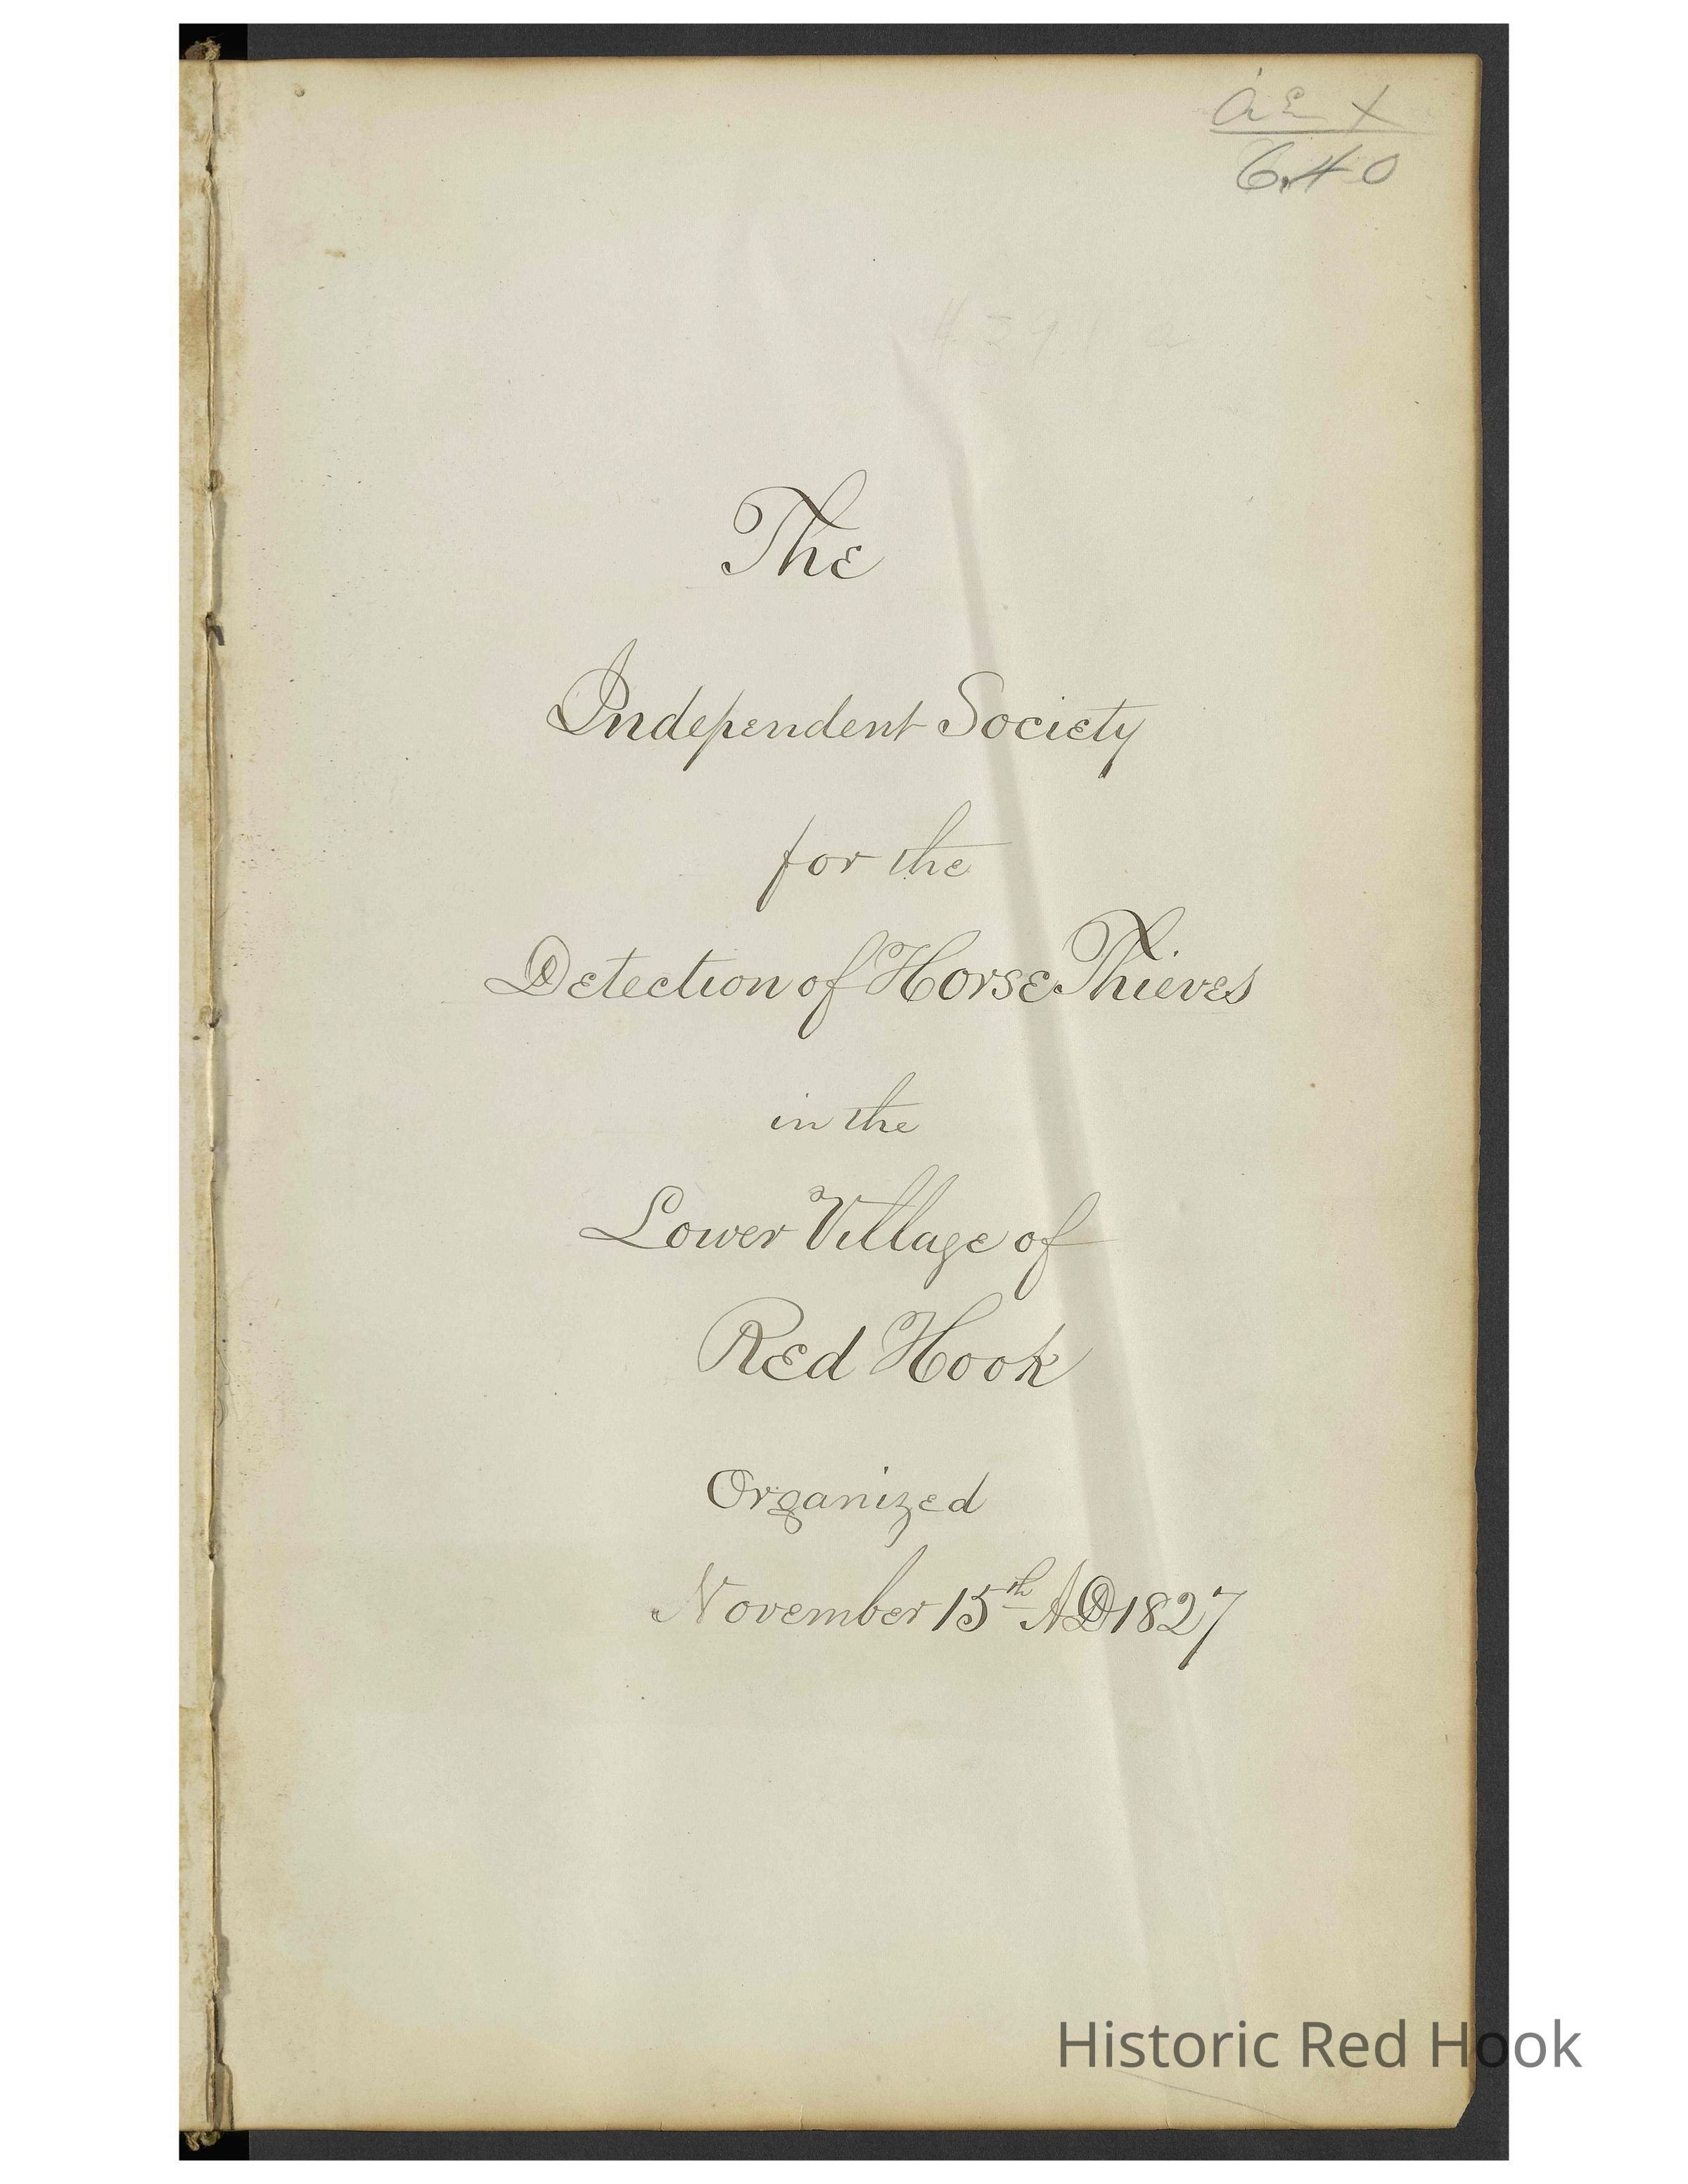 6.40
The
Independent Society
for the
Detection of Horse Thieves
in the
Lower Village of
Red Hook
Organized
November 15th AD 1827
Historic Red Hook